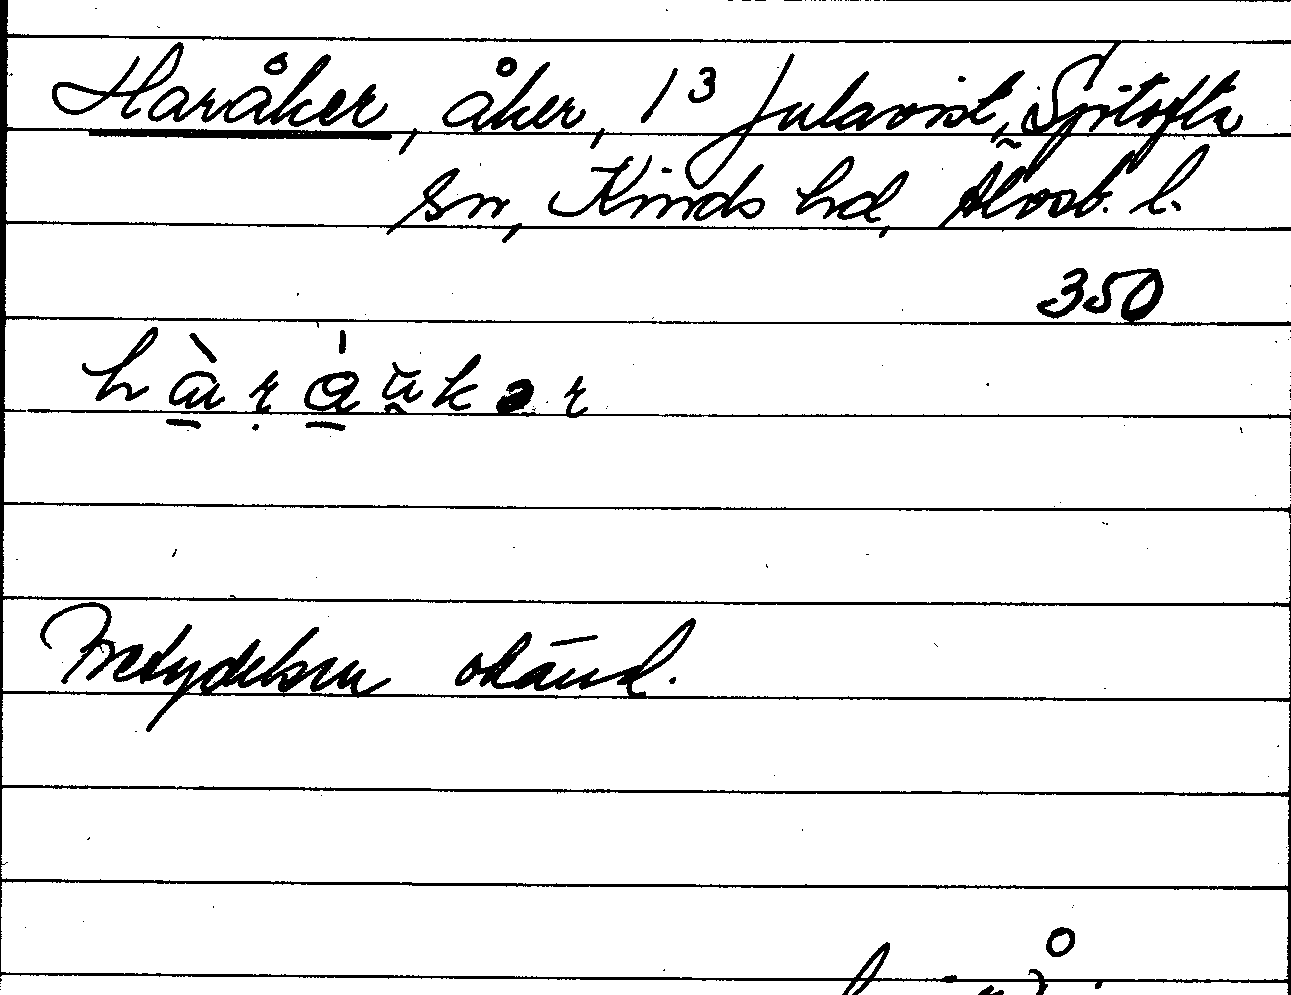 Haråker, åker, 1³ Julared, Spitofta
sn, Kinds hd, Älvsb. l.
350
Betydelsen okänd.